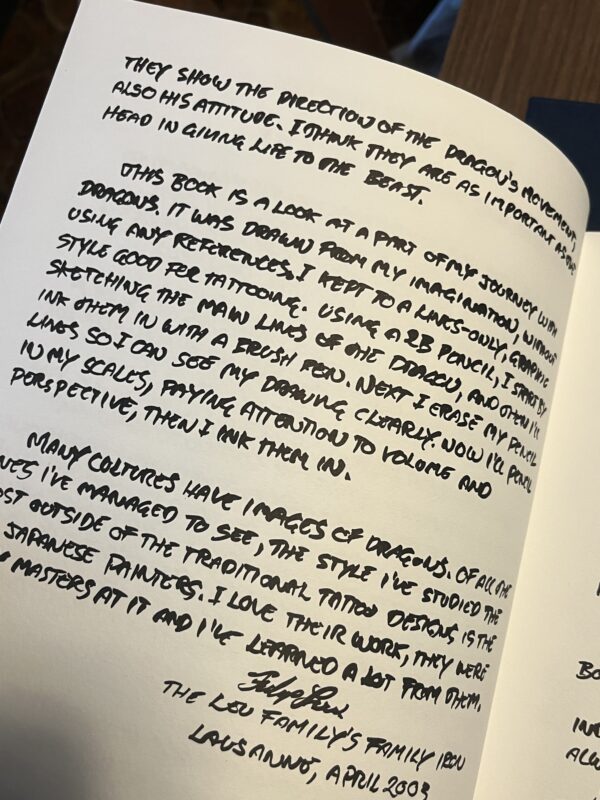 THEY SHOW THE DIRECTION OF THE DRAGON'S MOVEMENT,
ALSO HIS ATTITUDE. I THINK THEY ARE AS IMPORTANT AS THE
HEAD IN GIVING LIFE TO THE BEAST.
THIS BOOK IS A LOOK AT A PART OF MY JOURNEY WITH
DRAGONS. IT WAS DRAWN FROM MY IMAGINATION, WITHOUT
USING ANY REFERENCES. I KEPT TO A LINES-ONLY, GRAPHIC
STYLE GOOD FOR TATTOOING. USING A 2B PENCIL, I START BY
SKETCHING THE MAIN LINES OF THE DRAGON, AND THEN I'LL
INK THEM IN WITH A BRUSH PEN. NEXT I ERASE MY PENCIL
LINES SO I CAN SEE MY DRAWING CLEARLY. NOW I'LL PENCIL
IN MY SCALES, PAYING ATTENTION TO VOLUME AND
PERSPECTIVE, THEN I INK THEM IN.
MANY CULTURES HAVE IMAGES OF DRAGONS. OF ALL THE
NES I'VE MANAGED TO SEE, THE STYLE I'VE STUDIED THE
OST OUTSIDE OF THE TRADITIONAL TATTOO DESIGNS IS THE
JAPANESE PAINTERS. I LOVE THEIR WORK, THEY WERE
MASTERS AT IT AND I'VE LEARNED A LOT FROM THEM.
THE LEU FAMILY'S FAMILY IRON
LAUSANNE, APRIL 2003
BO
IN
ALW